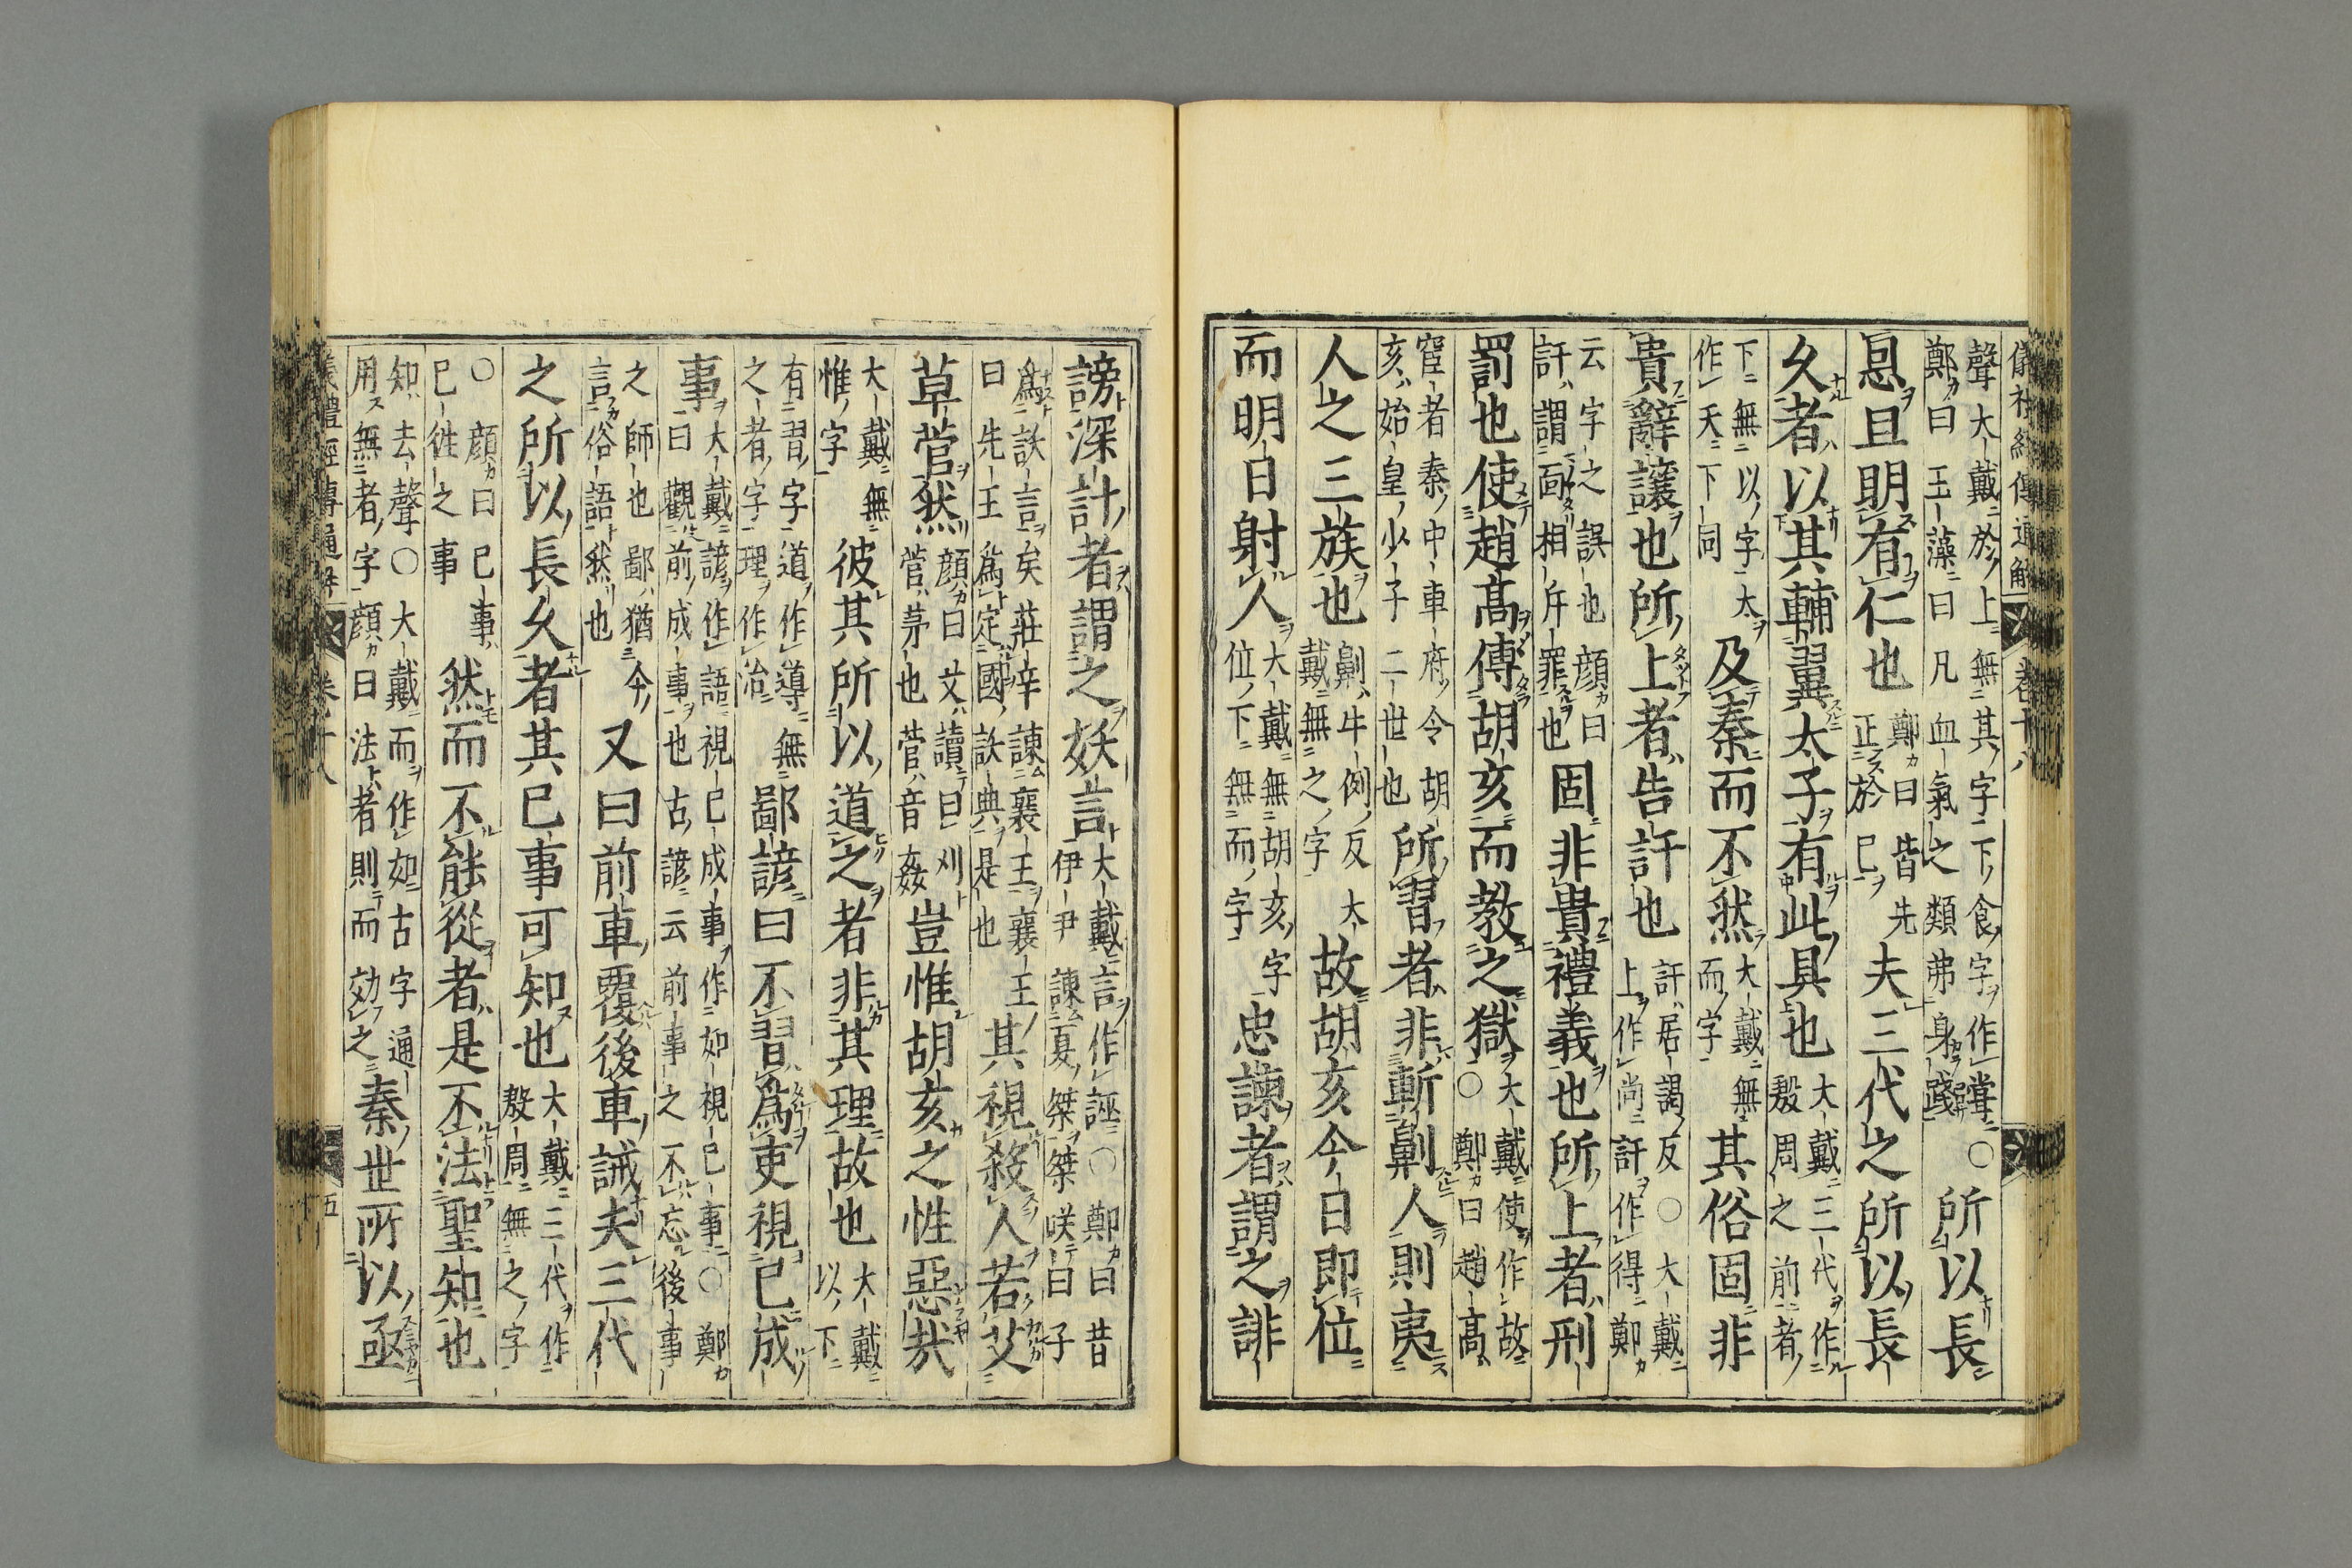 儀禮經傳通解 卷十八
聲大戴於上無其字下食字作嘗○
鄭曰玉藻曰凡血氣之類弗身踐
所以長
恩且明有仁也
鄭曰皆先
正於己
夫三代之所以長
久者以其輔翼太子有此具也
大戴三代作
殷周之前者
下無以字太
作天下同
及秦而不然
大戴無
而字
其俗固非
貴辭讓也所上者告訐也
訐居謁反○大戴
上作尚訐作得鄭
云字之誤也顔曰
訐謂面相斥罪也
固非貴禮義也所上者刑
罰也使趙高傅胡亥而教之獄
大戴使作故
○鄭曰趙高
宦者秦中車府令胡
亥始皇少子二世也
所習者非斬劓人則夷
人之三族也
劓牛例反太
戴無之字
故胡亥今日即位
而明日射人
大戴無胡亥字
位下無而字
忠諫者謂之誹
謗深計者謂之妖言
大戴言作誣○鄭曰昔
伊尹諫夏桀桀咲曰子
爲訞言矣莊辛諫襄王襄王
曰先王爲定國訞典是也
其視殺人若艾
草菅然
顔曰艾讀曰刈
菅茅也菅音姦
豈惟胡亥之性惡哉
大戴無
惟字
彼其所以道之者非其理故也
大戴
以下
有習字道作導無
之者字理作治
鄙諺曰不習爲吏視已成
事
大戴諺作語視已成事作如視已事○鄭
曰觀前成事也古諺云前事之不忘後事
之師也鄙猶今
言俗語然也
又曰前車覆後車誡夫三代
之所以長久者其已事可知也
大戴三代作
殷周無之字
○顔曰已事
已往之事
然而不能從者是不法聖知也
知去聲○大戴而作如古字通
用無者字顔曰法者則而効之
秦世所以亟
儀禮經傳通解 卷十八 五